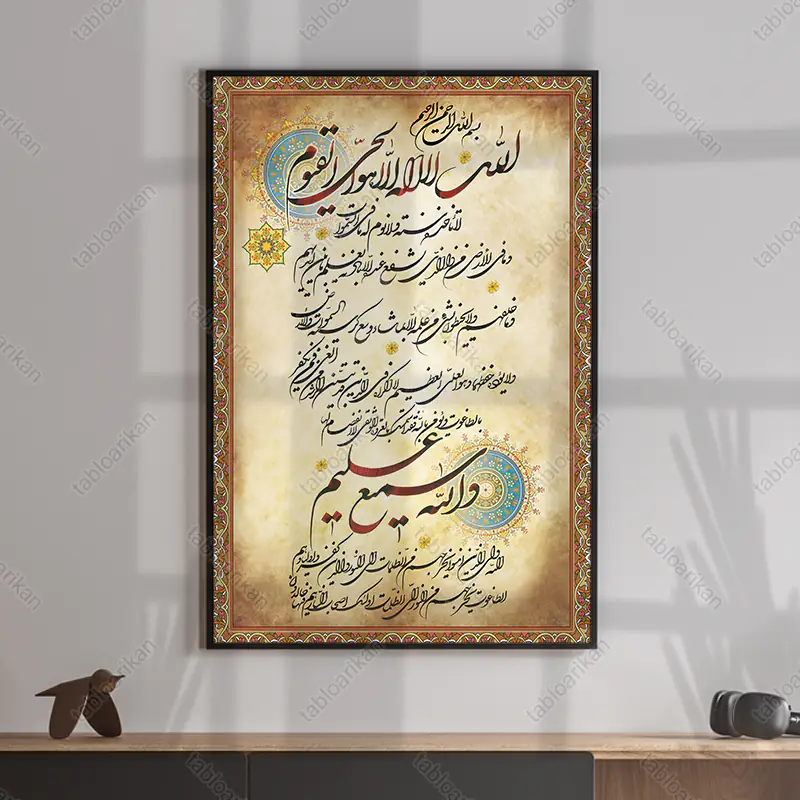 بسم الله الرحمن الرحیم
الله لا اله الا هو الحی القیوم
لا تاخذه سنة ولا نوم له ما فی السموات
وما فی الارض من ذا الذی یشفع عنده الا باذنه یعلم ما بین ایدیهم
وما خلفهم ولا یحیطون بشئ من علمه الا بما شاء وسع کرسیه السموات والارض
ولا یؤده حفظهما وهو العلی العظیم لا اکراه فی الدین قد تبین الرشد من الغی فمن یکفر
بالطاغوت ویؤمن بالله فقد استمسک بالعروة الوثقی لا انفصام لها
والله سمیع علیم
الله ولی الذین امنوا یخرجهم من الظلمات الی النور والذین کفروا اولیاؤهم
الطاغوت یخرجونهم من النور الی الظلمات اولئک اصحاب النار هم فیها خالدون
tabloarikan